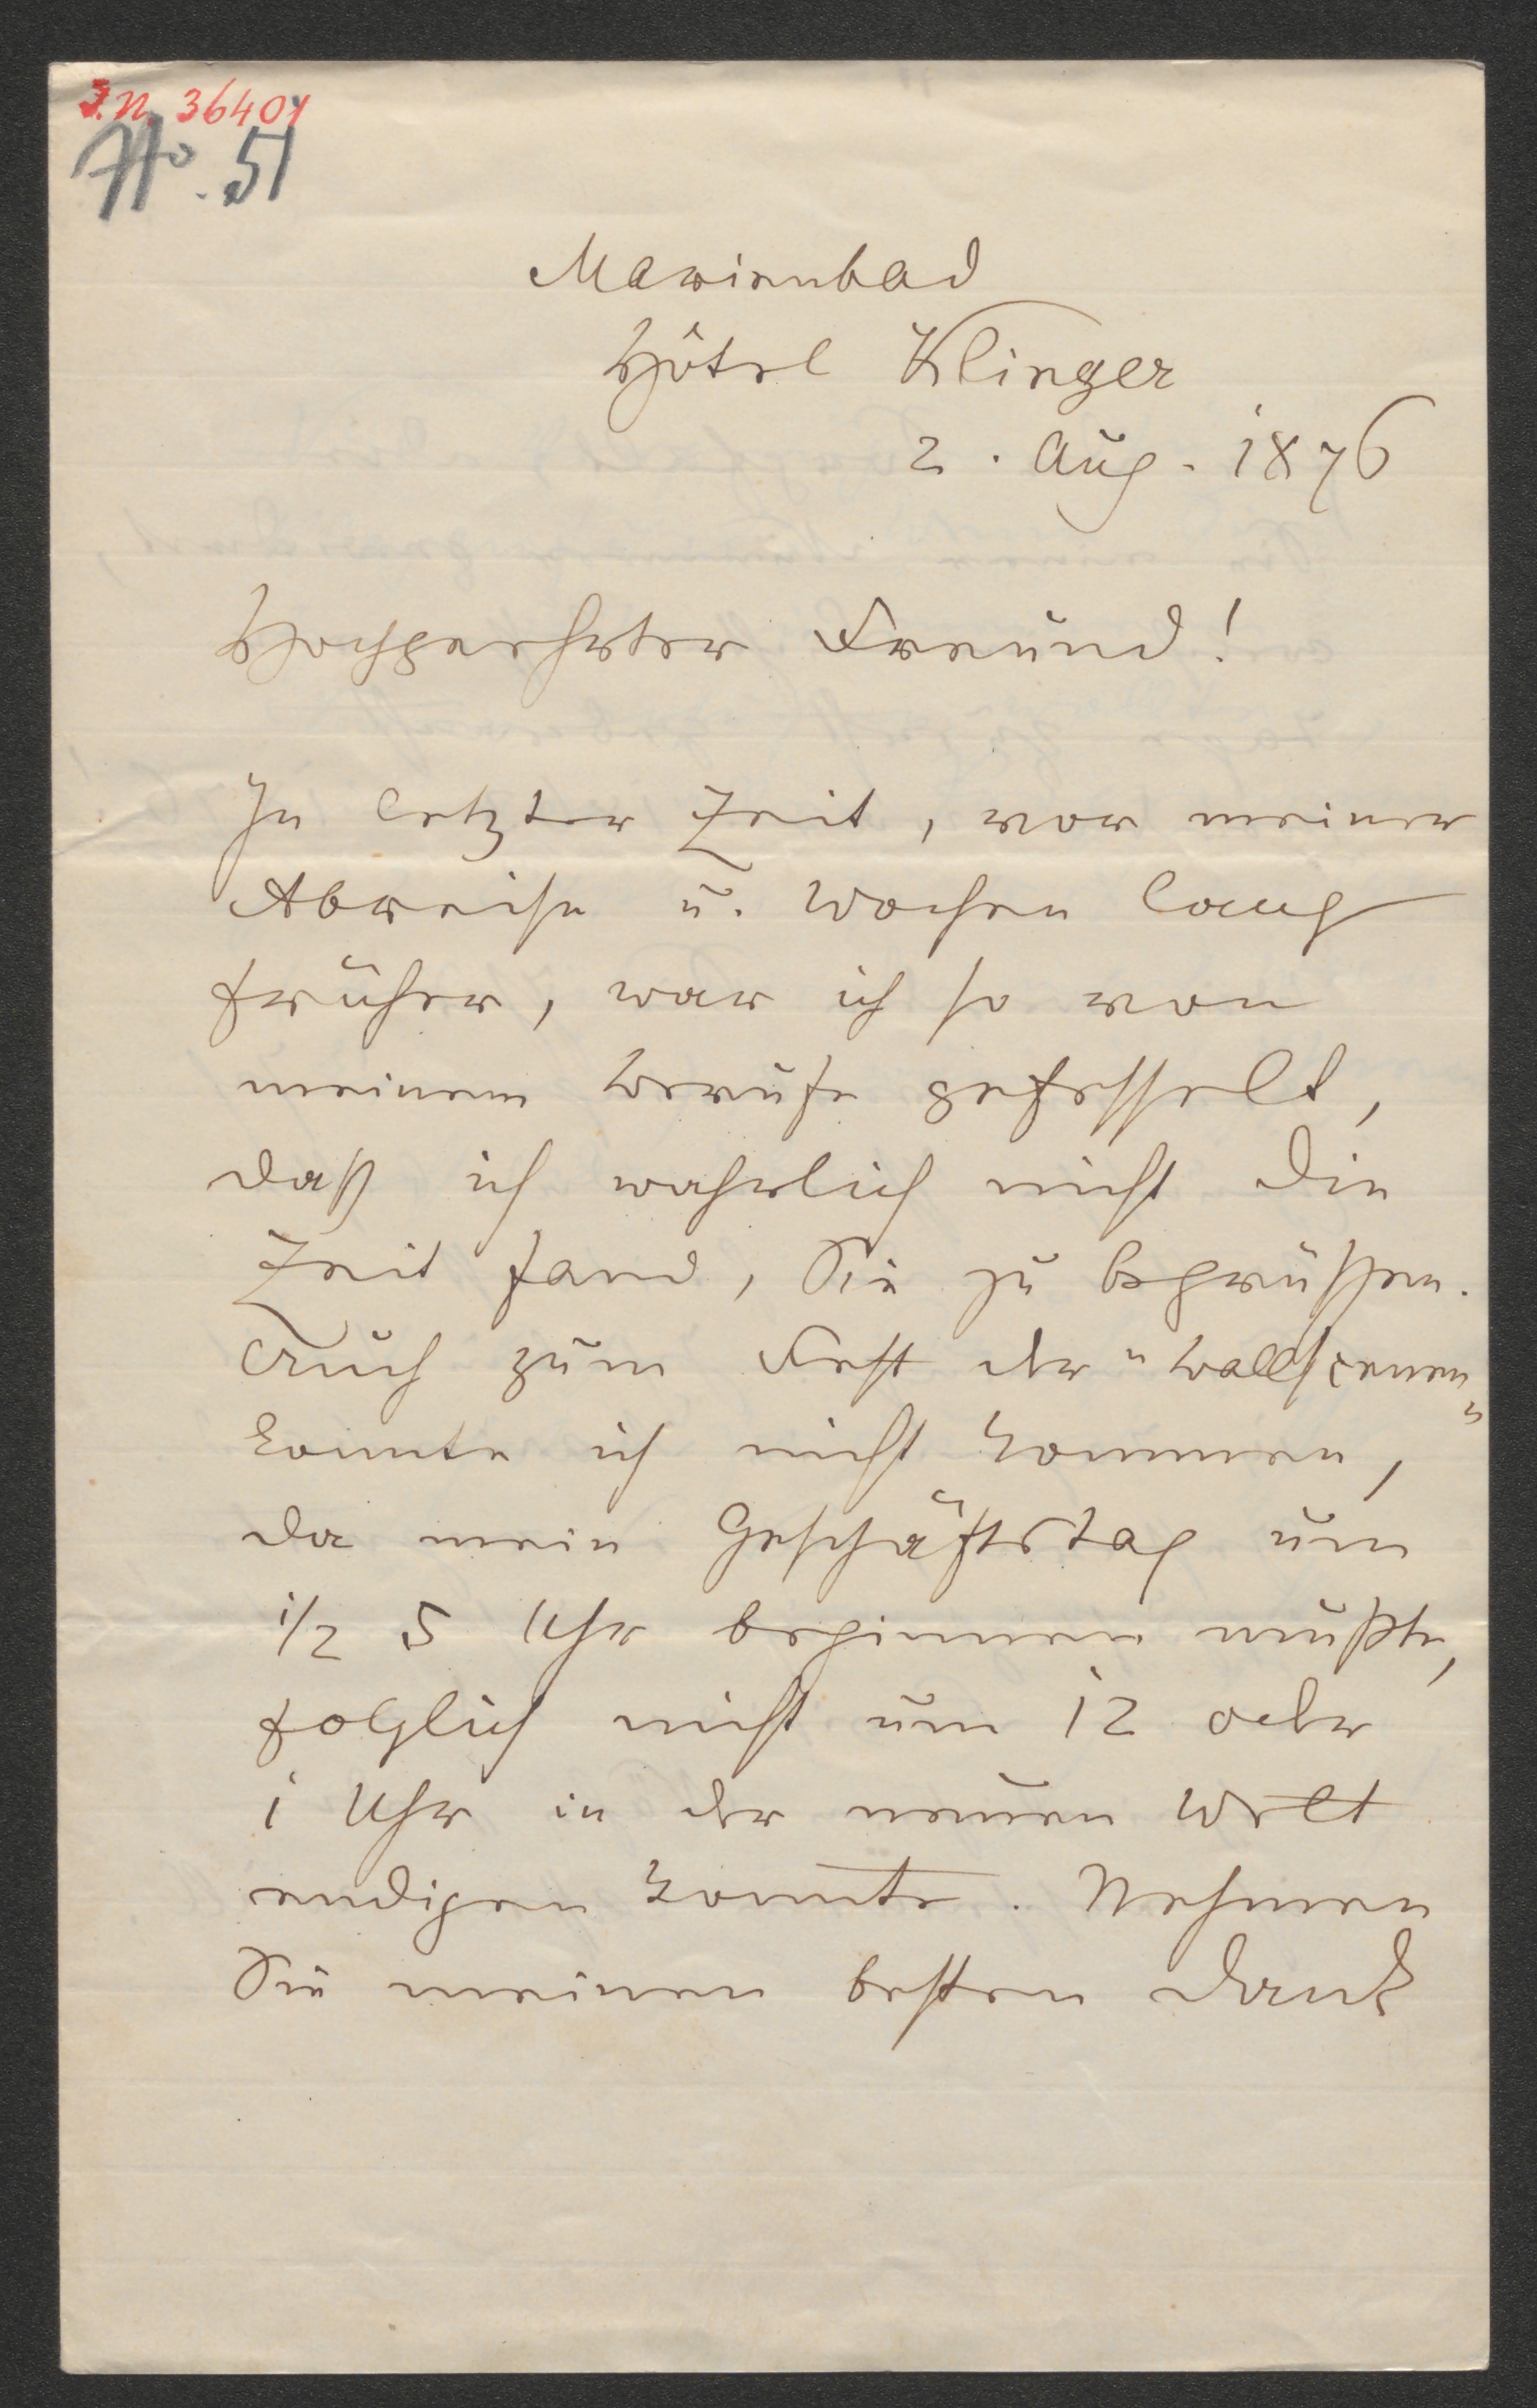 I.N. 36401
No. 51
Marienbad
Hôtel Klinger
2. Aug. 1876
Hochgeehrter Freund!
In letzter Zeit, vor meiner
Abreise u. Wochen lang
früher, war ich so von
meinem Berufe gefesselt,
daß ich wahrlich nicht die
Zeit fand, Sie zu begrüßen.
Auch zum Fest der "Ballscenen"
konnte ich nicht kommen,
da mein Geschäftstag um
1/2 5 Uhr beginnen mußte,
folglich nicht um 12 oder
1 Uhr in der neuen Welt
endigen konnte. Nehmen
Sie meinen besten Dank